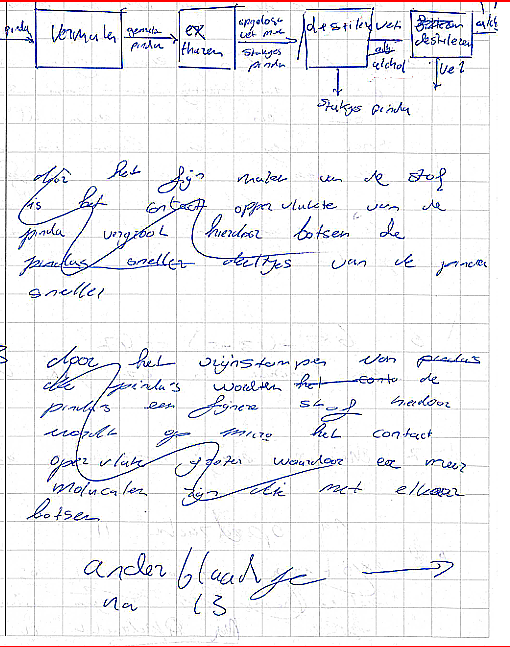 pinda
vermalen
gemale pinda
ex traheren
opgelost vet met stukjes pinda
destileren
vet
alchol
destileren
vet
stukjes pinda
door het fijn malen van de stof
is het contact oppervlakte van de
pinda vergroot hierdoor botsen de
pindas sneller deeltjes van de pinda
sneller
door het vrijnstampen van pindas
de pinda's worden het conta de
pindas een fijnere stof hierdoor
wordt op micro het contact
oper vlakte groter waardoor er meer
molucalen zijn die met elkaar
botsen
ander blaadje
na 13